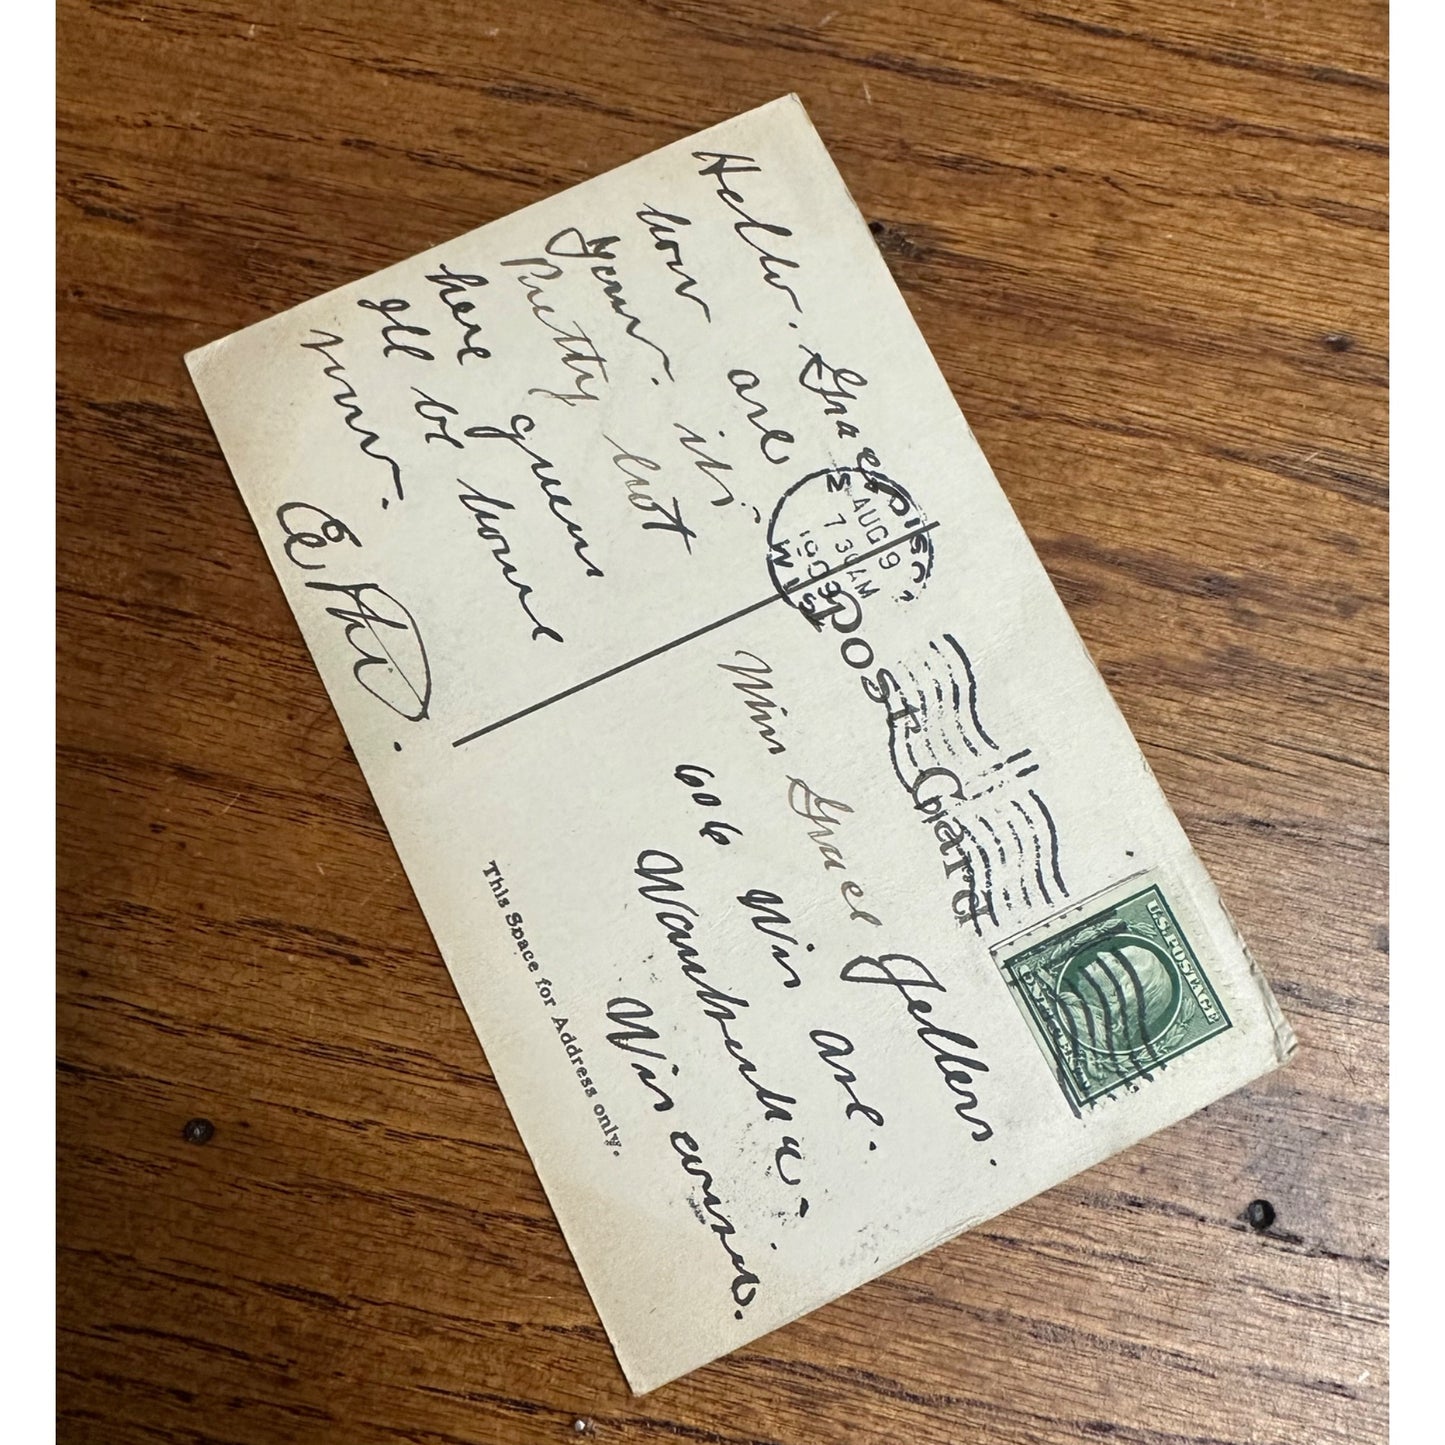 Post Card
AUG 9
7 30 AM
1909
WIS.
U.S. POSTAGE
Hello. Grace
how are
your. it's
Pretty hot
here guess
Ill be home
now.
Miss Grace Jellers.
606 Wis ave.
Waukesha.
Wisconsin.
This Space for Address only.